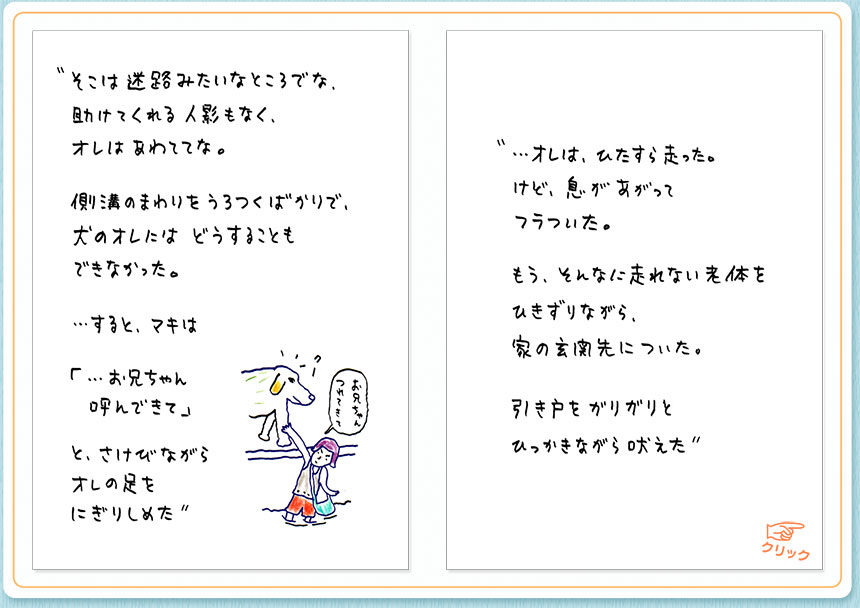 "そこは迷路みたいなところでな、
助けてくれる人影もなく、
オレはあわててな。
側溝のまわりをうろつくばかりで、
犬のオレには どうすることも
できなかった。
…すると、マキは
「…お兄ちゃん
呼んできて」
と、さけびながら
オレの足を
にぎりしめた"
お兄ちゃん
つれてきて
"…オレは、ひたすら走った。
けど、息があがって
フラついた。
もう、そんなに走れない老体を
ひきずりながら、
家の玄関先についた。
引き戸をガリガリと
ひっかきながら吠えた"
クリック